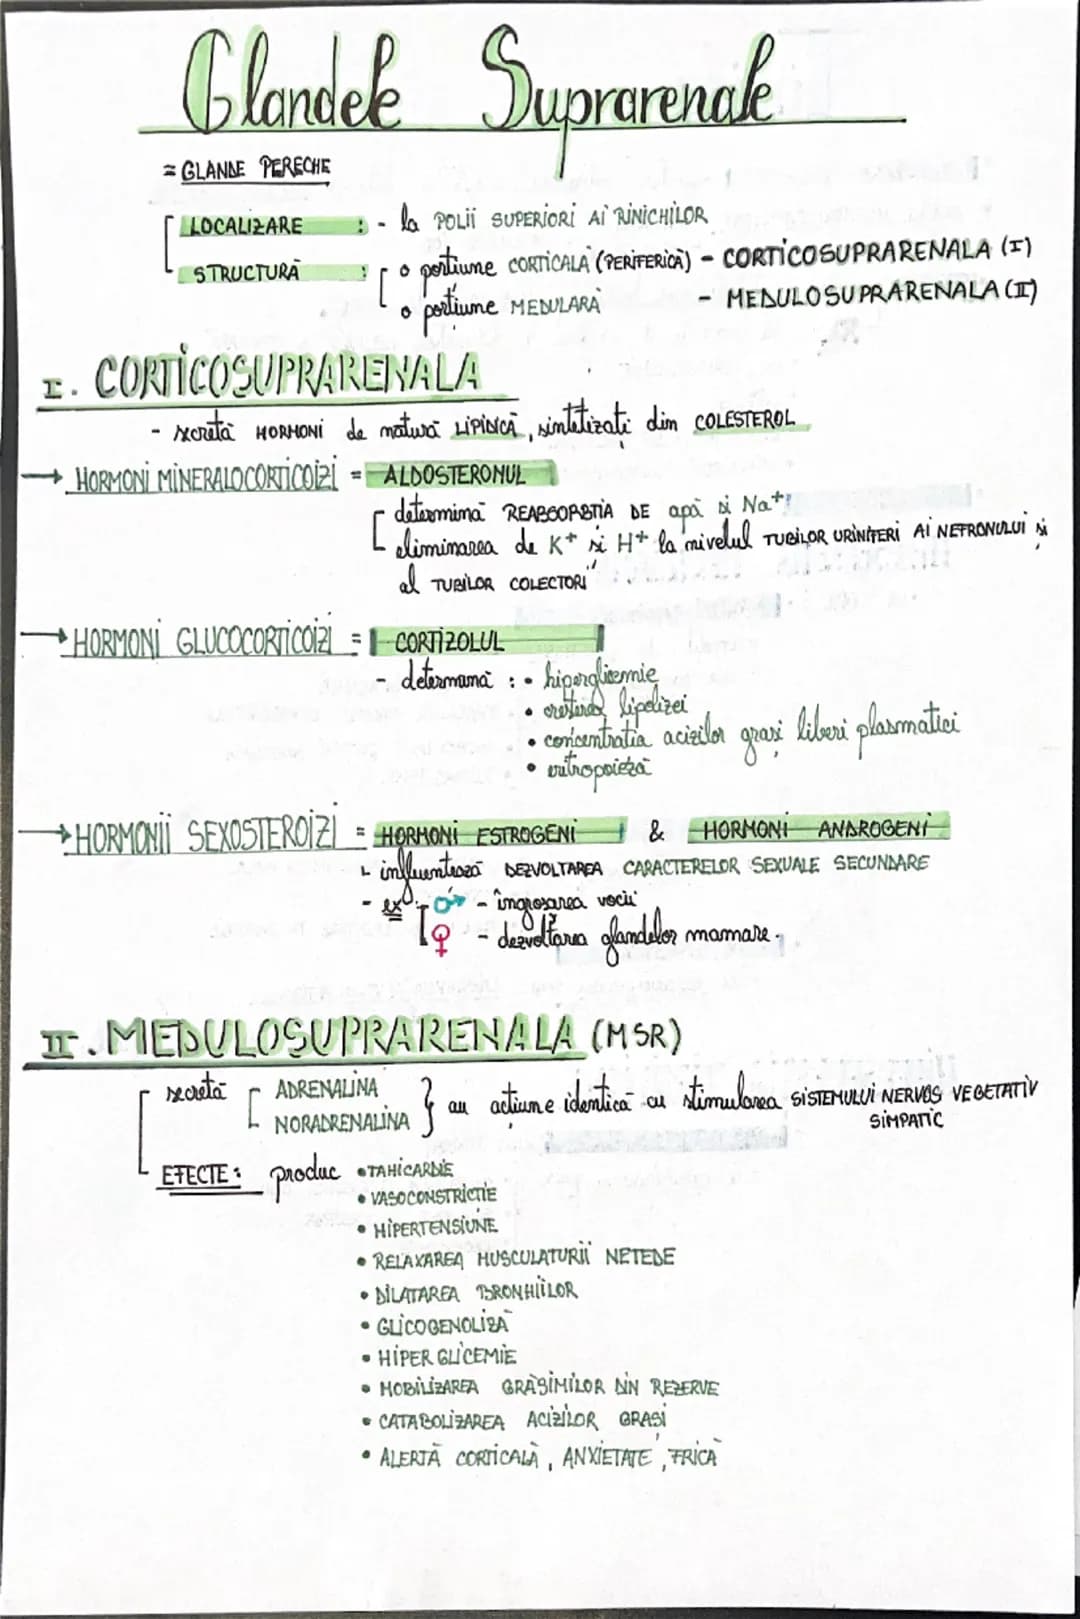 Glandele Suprarenale
= GLANDE PERECHE
LOCALIZARE : - la POLII SUPERIORI AI RINICHILOR
STRUCTURĂ : o porțiune CORTICALĂ (PERIFERICĂ) - CORTICOSUPRARENALA (I)
o porțiune MEDULARĂ - MEDULOSUPRARENALA (II)
I. CORTICOSUPRARENALA
- secretă HORMONI de natură LIPIDICĂ, sintetizați din COLESTEROL
→ HORMONI MINERALOCORTICOIZI = ALDOSTERONUL
determină REABSORBȚIA DE apă și Na+
eliminarea de K+ și H+ la nivelul TUBILOR URINIFERI AI NEFRONULUI și
al TUBILOR COLECTORI
→ HORMONI GLUCOCORTICOIZI = CORTIZOLUL
- determină : • hiperglicemie
• creșterea lipolizei
• concentratia acizilor grași liberi plasmatici
• eritropoieză
→ HORMONII SEXOSTEROIZI = HORMONI ESTROGENI & HORMONI ANDROGENI
influențează DEZVOLTAREA CARACTERELOR SEXUALE SECUNDARE
- ex: ♂ - îngroșarea vocii
♀ - dezvoltarea glandelor mamare.
II. MEDULOSUPRARENALA (MSR)
secretă ADRENALINA } au acțiune identică cu stimularea SISTEMULUI NERVOS VEGETATIV
NORADRENALINA SIMPATIC
EFECTE: produc • TAHICARDIE
• VASOCONSTRICȚIE
• HIPERTENSIUNE
• RELAXAREA MUSCULATURII NETEDE
• DILATAREA BRONHIILOR
• GLICOGENOLIZĂ
• HIPERGLICEMIE
• MOBILIZAREA GRĂSIMILOR DIN REZERVE
• CATABOLIZAREA ACIZILOR GRAȘI
• ALERTĂ CORTICALĂ, ANXIETATE, FRICĂ